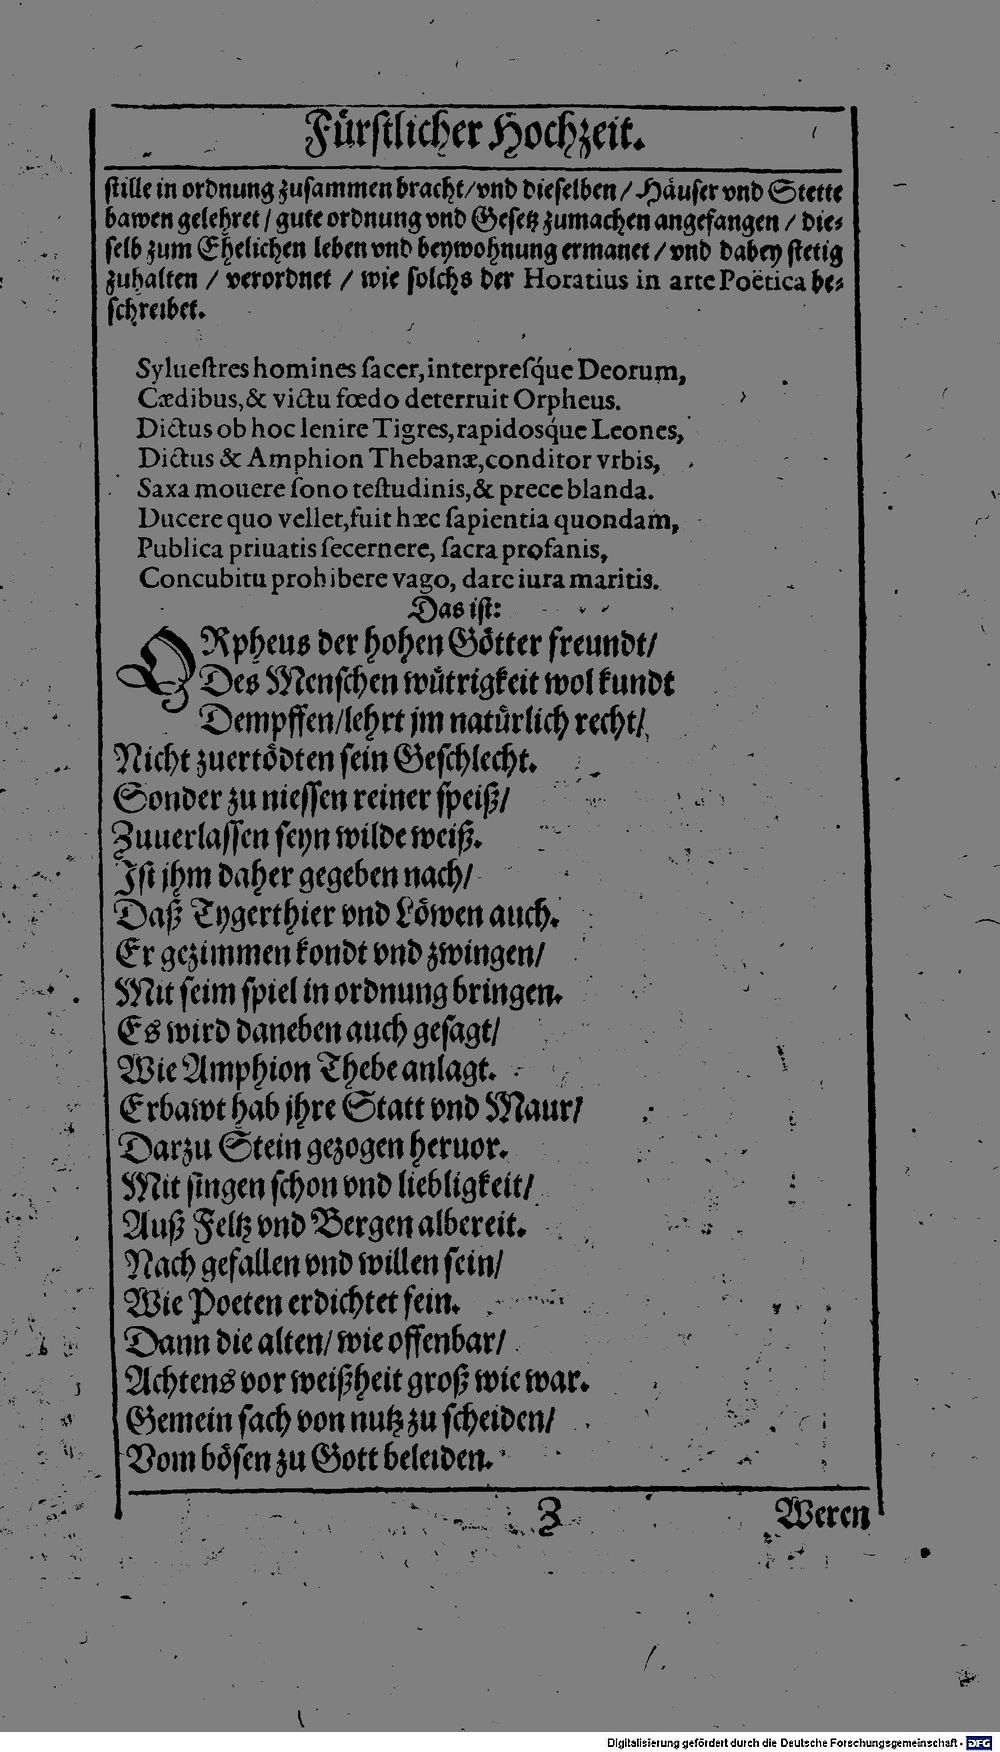 Fürstlicher Hochzeit.
stille in ordnung zusammen bracht/vnd dieselben / Häuser vnd Stette
bawen gelehret / gute ordnung vnd Gesetz zumachen angefangen / die-
selb zum Ehelichen leben vnd beywohnung ermanet / vnd dabey stetig
zuhalten / verordnet / wie solchs der Horatius in arte Poëtica be-
schreibet.
Syluestres homines sacer, interpresq́ue Deorum,
Cædibus, & victu fœdo deterruit Orpheus.
Dictus ob hoc lenire Tigres, rapidosq́ue Leones,
Dictus & Amphion Thebanæ, conditor vrbis,
Saxa mouere sono testudinis, & prece blanda.
Ducere quo vellet, fuit hæc sapientia quondam,
Publica priuatis secernere, sacra profanis,
Concubitu prohibere vago, dare iura maritis.
Das ist:
ORpheus der hohen Götter freundt/
Des Menschen wütrigkeit wol kundt
Dempffen/lehrt jm natürlich recht/
Nicht zuertödten sein Geschlecht.
Sonder zu niessen reiner speiß/
Zuuerlassen seyn wilde weiß.
Ist jhm daher gegeben nach/
Daß Tygerthier vnd Löwen auch.
Er gezimmen kondt vnd zwingen/
Mit seim spiel in ordnung bringen.
Es wird daneben auch gesagt/
Wie Amphion Thebe anlagt.
Erbawt hab jhre Statt vnd Maur/
Darzu Stein gezogen heruor.
Mit singen schon vnd liebligkeit/
Auß Feltz vnd Bergen albereit.
Nach gefallen vnd willen sein/
Wie Poeten erdichtet sein.
Dann die alten/ wie offenbar/
Achtens vor weißheit groß wie war.
Gemein sach von nutz zu scheiden/
Vom bösen zu Gott beleiden.
Z Weren
Digitalisierung gefördert durch die Deutsche Forschungsgemeinschaft - DFG